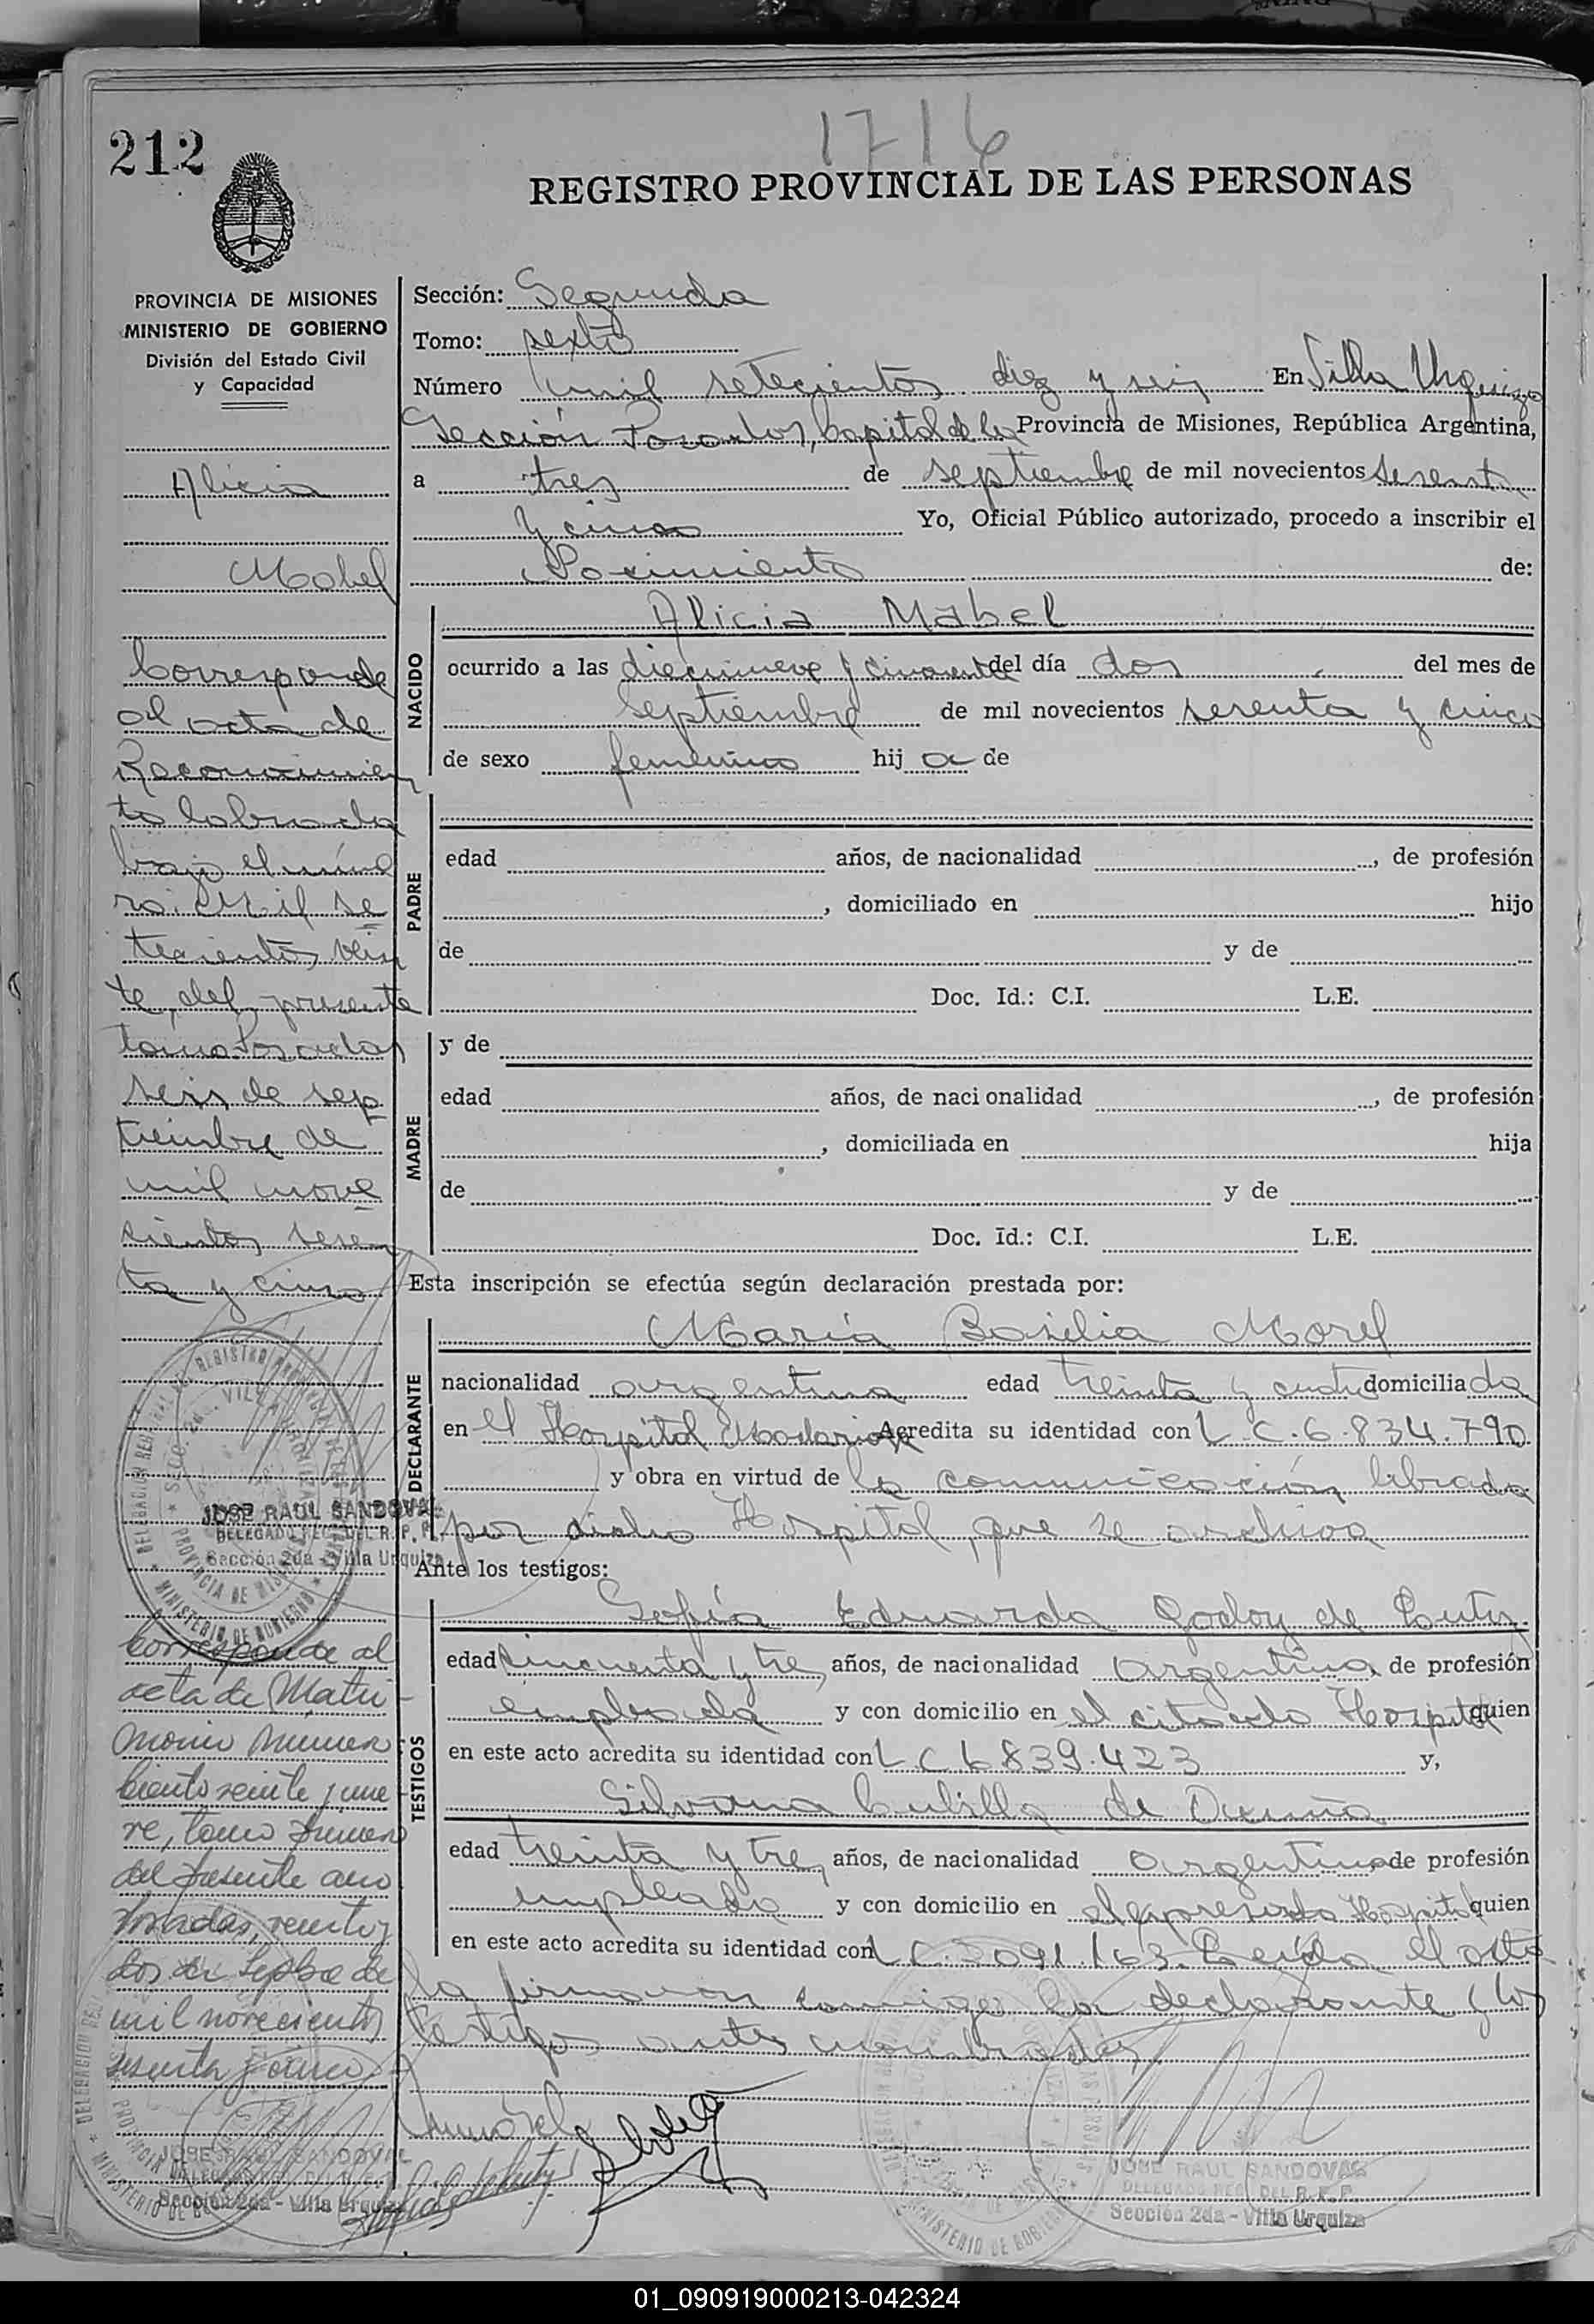 1716
212
REGISTRO PROVINCIAL DE LAS PERSONAS
PROVINCIA DE MISIONES
MINISTERIO DE GOBIERNO
División del Estado Civil
y Capacidad
Alicia
Mabel
Corresponde
al acta de
Reconocimien
to labrada
bajo el núme
ro: Mil se
tecientos vein
te, del presente
tomo. Posadas
seis de sep
tiembre de
mil nove
cientos sesen
ta y cinco
JOSE RAUL SANDOVAL
DELEGADO REG. DEL R. P. P.
Sección 2da - Villa Urquiza
Corresponde al
acta de Matri-
monio número
Ciento veinte y nue
ve, tomo primero
del presente año
Posadas, veinte y
dos de Sepbre de
mil novecientos
sesenta y cinco
JOSE RAUL SANDOVAL
DELEGADO REG. DEL R.P.P.
Sección 2da - Villa Urquiza
Sección: Segunda
Tomo: sexto
Número mil setecientos diez y seis En Villa Urquiza
Sección Posadas, Capital de la Provincia de Misiones, República Argentina,
a tres de septiembre de mil novecientos sesenta
y cinco Yo, Oficial Público autorizado, procedo a inscribir el
Nacimiento de:
NACIDO
Alicia Mabel
ocurrido a las diecinueve y cincuenta del día dos del mes de
septiembre de mil novecientos sesenta y cinco
de sexo femenino hija de
PADRE
edad años, de nacionalidad , de profesión
, domiciliado en hijo
de y de
Doc. Id.: C.I. L.E.
MADRE
y de
edad años, de naci onalidad , de profesión
, domiciliada en hija
de y de
Doc. Id.: C.I. L.E.
Esta inscripción se efectúa según declaración prestada por:
DECLARANTE
María Basilia Morel
nacionalidad argentina edad treinta y cuatro domiciliada
en el Hospital Madariaga Acredita su identidad con L.C.6.834.790
y obra en virtud de la comunicación librada
por dicho Hospital, que se archiva
Ante los testigos:
TESTIGOS
Sofía Eduarda Godoy de
edad cincuenta y tres años, de nacionalidad argentina, de profesión
empleada y con domicilio en el citado Hospital quien
en este acto acredita su identidad con L C 6839.423 y,
Silvana Cubilla de
edad treinta y tres años, de nacionalidad argentina de profesión
empleada y con domicilio en el expresado Hospital quien
en este acto acredita su identidad con L C.2091.163. Leída el acta
la firmaron conmigo la declarante y los
testigos antes nombrados
JOSE RAUL SANDOVAL
DELEGADO REG. DEL R.P.P.
Sección 2da - Villa Urquiza
01_090919000213-042324